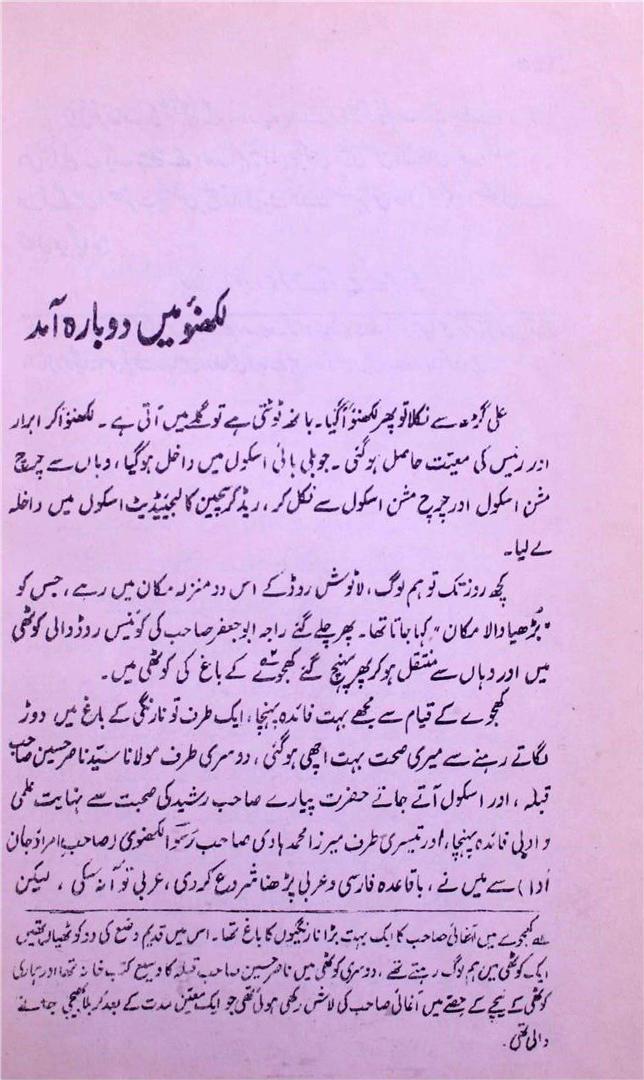 لکھنؤ میں دوبارہ آمد
علی گڑھ سے نکلا تو پھر لکھنؤ آگیا۔ بانھ ٹوٹتی ہے تو گلے میں آتی ہے۔ لکھنؤ آکر ابرار
اور رئیس کی معیّت حاصل ہوگئی۔ جوبلی ہائی اسکول میں داخل ہوگیا، وہاں سے چرچ
مشن اسکول اور چرچ مشن اسکول سے نکل کر، ریڈ کرسچین کالجیئیٹ اسکول میں داخلہ
لے لیا۔
کچھ روز تک تو ہم لوگ، لاٹوش روڈ کے اس دو منزلہ مکان میں رہے، جس کو
"بُڑھیا والا مکان" کہا جاتا تھا۔ پھر چلے گئے راجہ ابو جعفر صاحب کی کوئنس روڈ والی کوٹھی
میں اور وہاں سے منتقل ہو کر پھر پہنچ گئے کھجوے کے باغ کی کوٹھی میں۔
کھجوے کے قیام سے مجھے بہت فائدہ پہنچا، ایک طرف تو نارنگی کے باغ میں دوڑ
لگاتے رہنے سے میری صحت بہت اچھی ہوگئی، دوسری طرف مولانا سیّد ناصر حسین صاحب
قبلہ، اور اسکول آتے جاتے حضرت پیارے صاحب رشید کی صحبت سے نہایت علمی
و ادبی فائدہ پہنچا، اور تیسری طرف میرزا محمد ہادی صاحب رسوا لکھنوی (صاحبِ امراؤ جان
اَدا) سے میں نے، باقاعدہ فارسی و عربی پڑھنا شروع کردی، عربی تو آ نہ سکی، لیکن
لے کھجوے میں آغائی صاحب کا ایک بہت بڑا نارنگیوں کا باغ تھا۔ اس میں قدیم وضع کی دو کوٹھیاں تھیں
ایک کوٹھی میں ہم لوگ رہتے تھے، دوسری کوٹھی میں ناصر حسین صاحب قبلہ کا وسیع کتب خانہ تھا اور ہماری
کوٹھی کے نیچے کے حصّے میں آغائی صاحب کی لاش رکھی ہوئی تھی جو ایک معیّن مدت کے بعد کربلا بھیجی جانے
والی تھی۔